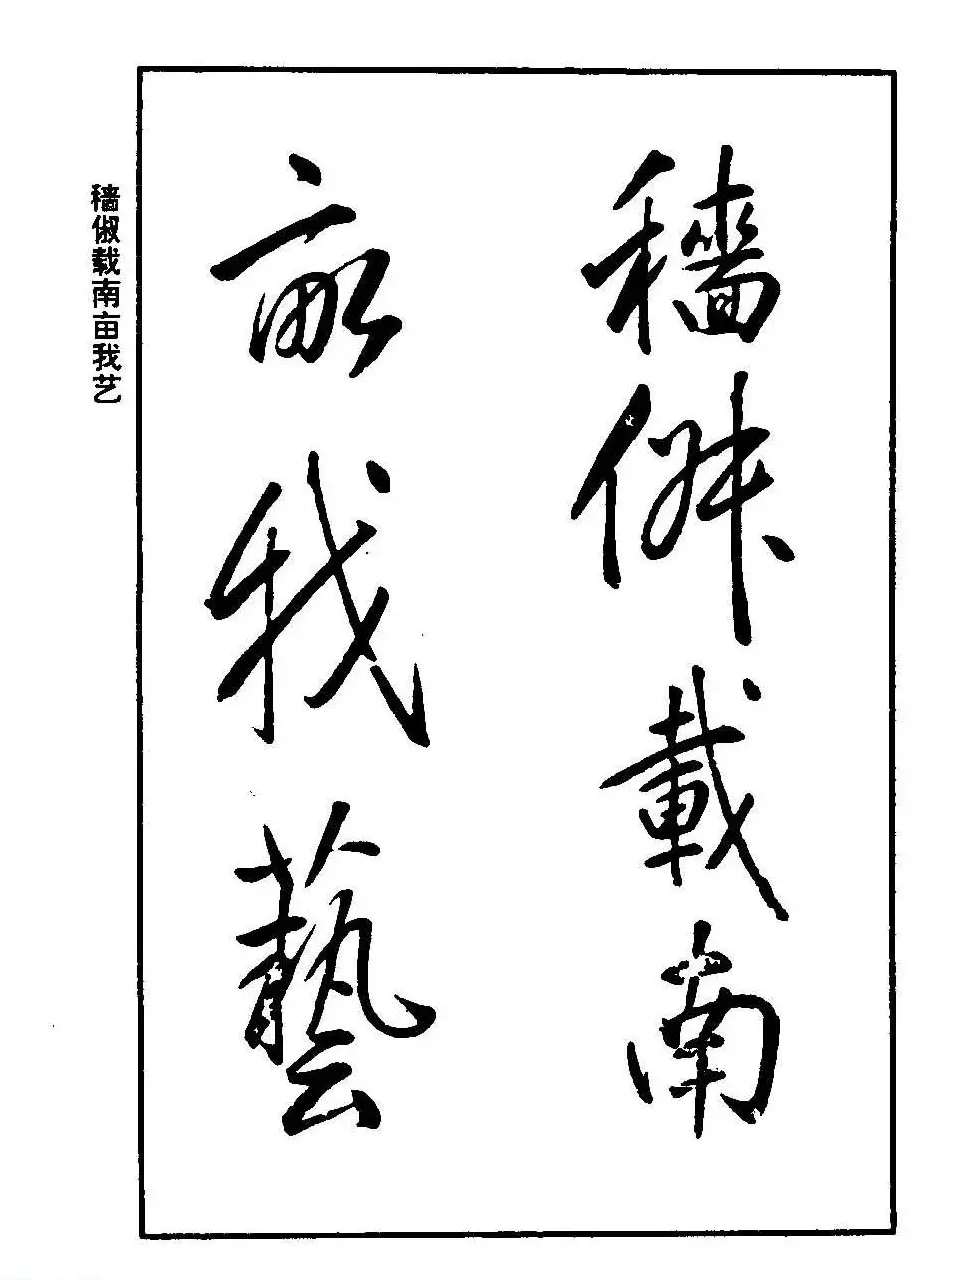 穡俶載南
畝我藝
穑俶载南亩我艺